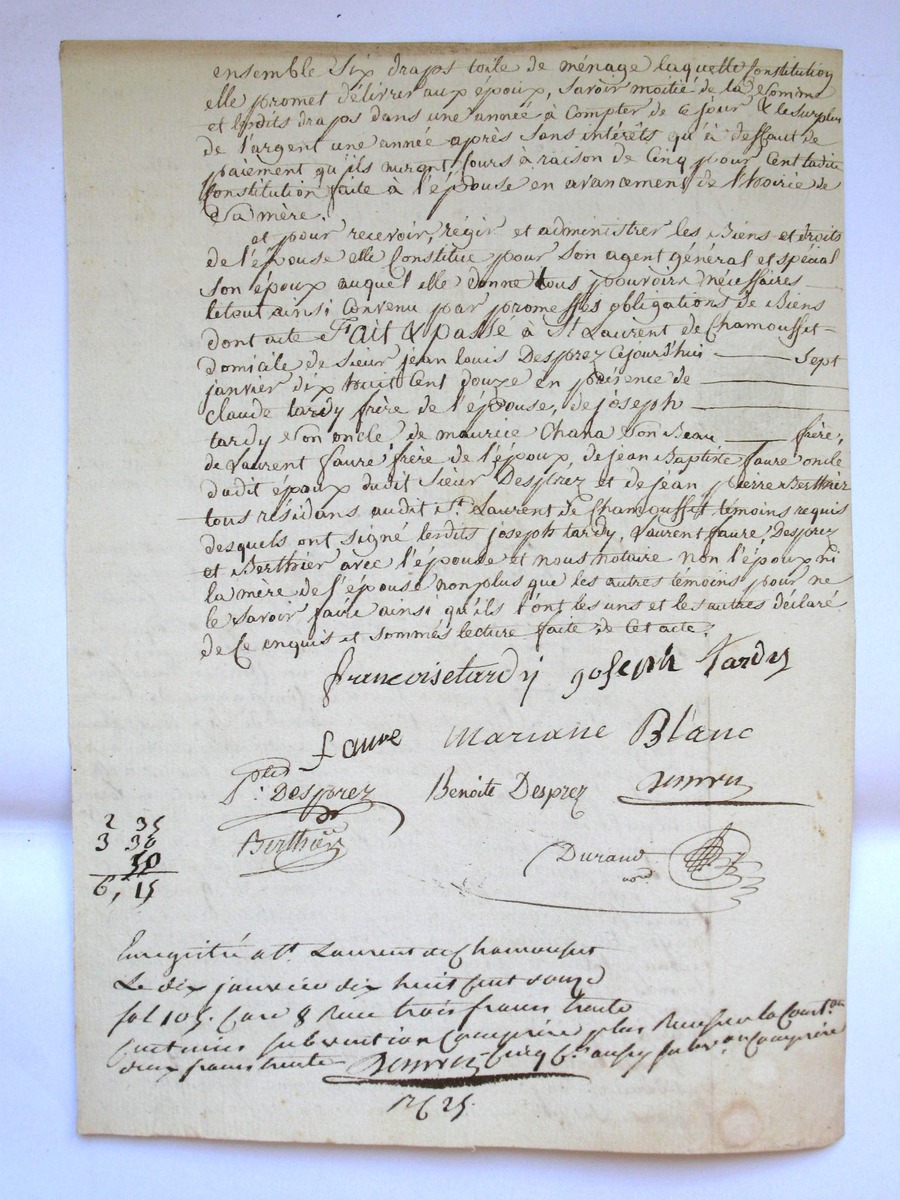 ensemble Six draps toile de ménage laquelle Constitution
elle promet délivrer aux époux, Savoir moitié de la Somme
et lesdits draps dans une année à Compter de ce jour & le surplus
de l'argent une année après Sans intérêts qu'à deffaut de
paiement qu'ils auront Cours à raison de Cinq pour Cent ladite
Constitution faite à l'épouse en avancement de l'hoirie de
Sa mère.
et pour recevoir, régir et administrer les Biens et droits
de l'épouse elle Constitue pour Son agent général et spécial
Son époux auquel elle donne tous pouvoirs nécessaires
le tout ainsi Convenu par promesses obligations de Biens
dont acte Fait & passé à St Laurent de Chamousset
domicile de Sieur jean louis Desprez Cejourd'hui Sept
janvier dix huit Cent douze en présence de
Claude tardy frère de l'épouse, de joseph
tardy Son oncle de maurice Chana Son Beau frère,
de Laurent faure frère de l'époux, de jean Baptiste faure oncle
dudit époux dudit Sieur Desprez et de jean pierre Berthier
tous résidans audit St Laurent de Chamousset témoins requis
desquels ont signé lesdits joseph tardy, Laurent faure, Desprez
et Berthier avec l'épouse et nous notaire non l'époux ni
la mère de l'épouse non plus que les autres témoins pour ne
le Savoir faire ainsi qu'ils l'ont les uns et les autres déclaré
de Ce enquis et sommés lecture faite de Cet acte.
francoise tardy joseph tardy
faure Mariane Blanc
Desprez Benoite Desprez
Berthier
Durand
2 35
3 30
50
6, 15
Enregistré a St Laurent de Chamousset
Le dix janvier dix huit cent douze
fol 105. Case 8 Reçu trois francs trente
Centimes subvention Comprise plus Reçu sur la Const.on
deux francs trente Cinq C. aussy subv.on Comprise